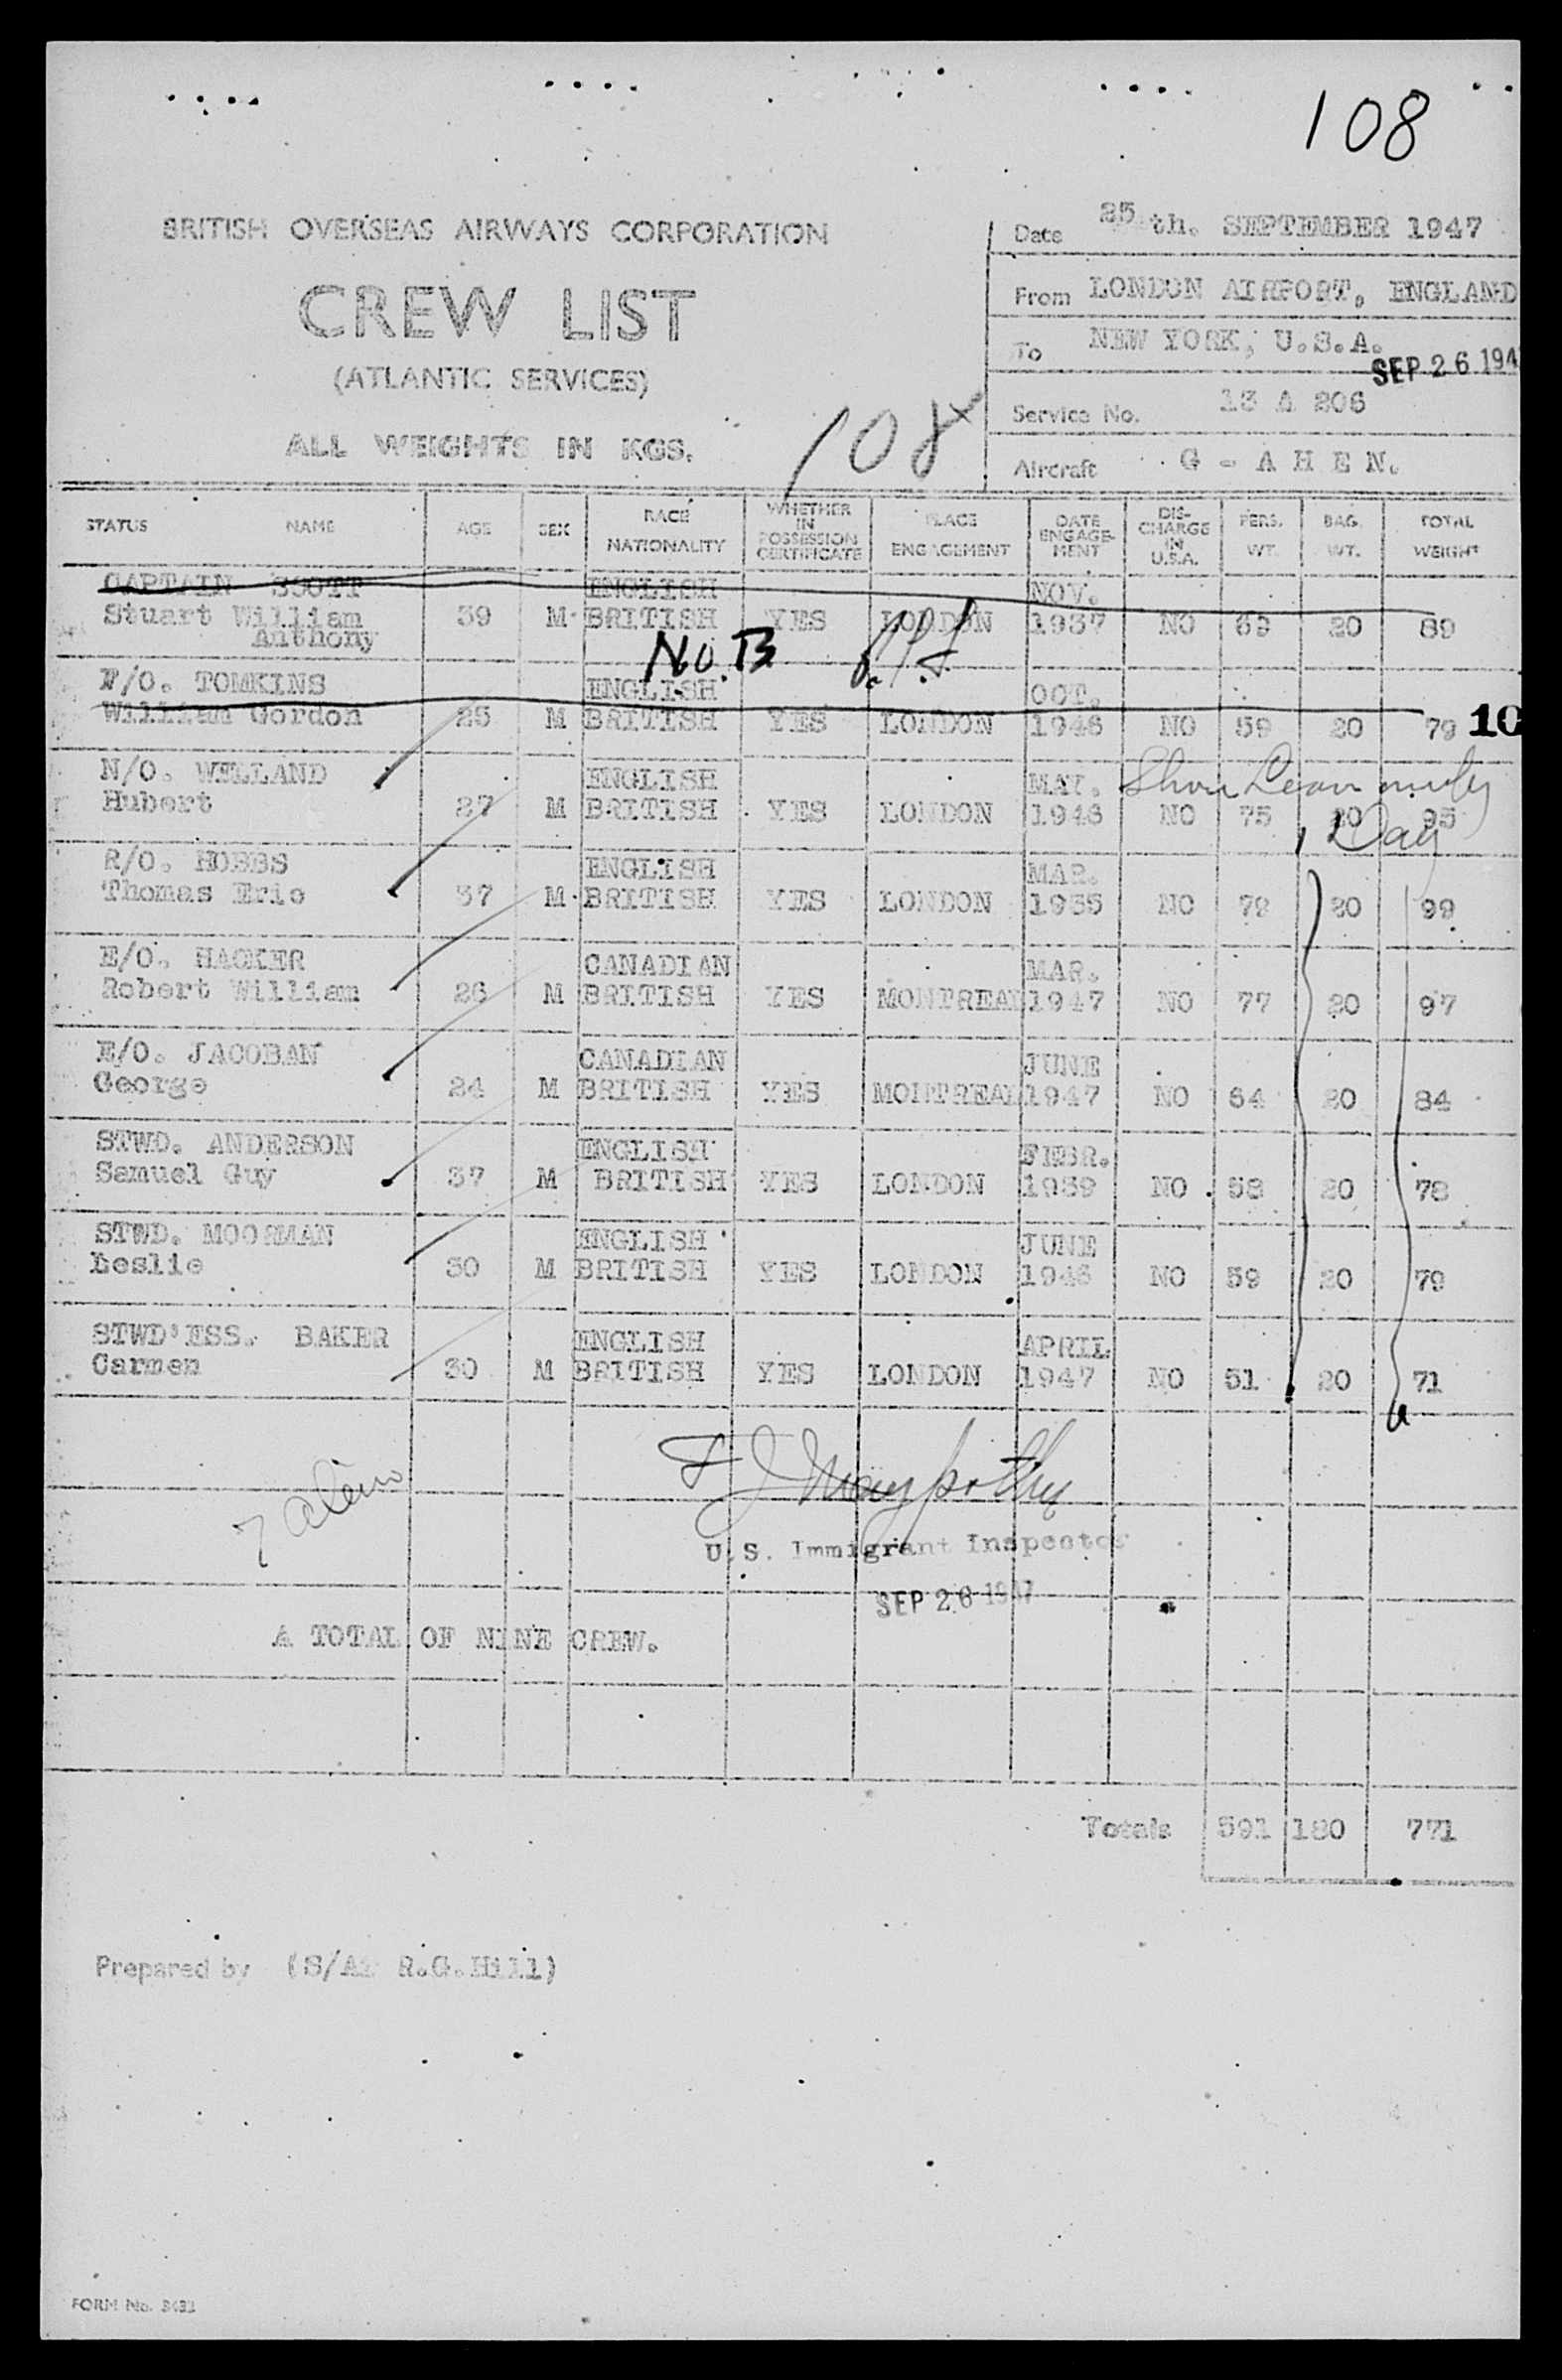 108
BRITISH OVERSEAS AIRWAYS CORPORATION
CREW LIST
(ATLANTIC SERVICES)
ALL WEIGHTS IN KGS.
108
Date 25 th. SEPTEMBER 1947
From LONDON AIRPORT, ENGLAND
To NEW YORK, U.S.A.
SEP 26 194
Service No. 13 A 206
Aircraft G - A H E N.
STATUS NAME AGE SEX RACE NATIONALITY WHETHER IN POSSESSION CERTIFICATE PLACE ENGAGEMENT DATE ENGAGE-MENT DIS-CHARGE IN U.S.A. PERS. WT. BAG. WT. TOTAL WEIGHT
CAPTAIN SCOTT ENGLISH NOV.
Stuart William 39 M BRITISH YES LONDON 1937 NO 69 20 89
Anthony
No B
F/O. TOMKINS ENGLISH OCT.
William Gordon 25 M BRITISH YES LONDON 1946 NO 59 20 79 10
N/O. WELLAND ENGLISH MAY.
Hubert 27 M BRITISH YES LONDON 1946 NO 75 20 95
Shore Leave only
1 Day
R/O. HOBBS ENGLISH MAR.
Thomas Eric 37 M BRITISH YES LONDON 1935 NO 79 20 99
E/O. HACKER CANADIAN MAR.
Robert William 26 M BRITISH YES MONTREAL 1947 NO 77 20 97
E/O. JACOBAN CANADIAN JUNE
George 24 M BRITISH YES MONTREAL 1947 NO 64 20 84
STWD. ANDERSON ENGLISH FEBR.
Samuel Guy 37 M BRITISH YES LONDON 1939 NO 58 20 78
STWD. MOORMAN ENGLISH JUNE
Leslie 30 M BRITISH YES LONDON 1946 NO 59 20 79
STWD'ESS. BAKER ENGLISH APRIL
Carmen 30 M BRITISH YES LONDON 1947 NO 51 20 71
7 aliens
U.S. Immigrant Inspector
SEP 26 1947
A TOTAL OF NINE CREW.
Totals 591 180 771
Prepared by (S/A: R.G.Hill)
FORM No. 3431